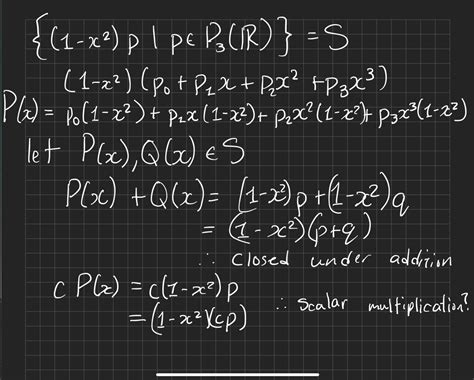 {(1-x²) p | p∈ P₃(ℝ)} = S
(1-x²) (p₀ + p₁x + p₂x² + p₃x³)
P(x) = p₀(1-x²) + p₁x(1-x²) + p₂x²(1-x²) + p₃x³(1-x²)
let P(x), Q(x) ∈ S
P(x) + Q(x) = (1-x²)p + (1-x²)q
= (1-x²)(p+q)
∴ Closed under addition
c P(x) = c(1-x²)p
= (1-x²)(cp) ∴ Scalar multiplication?